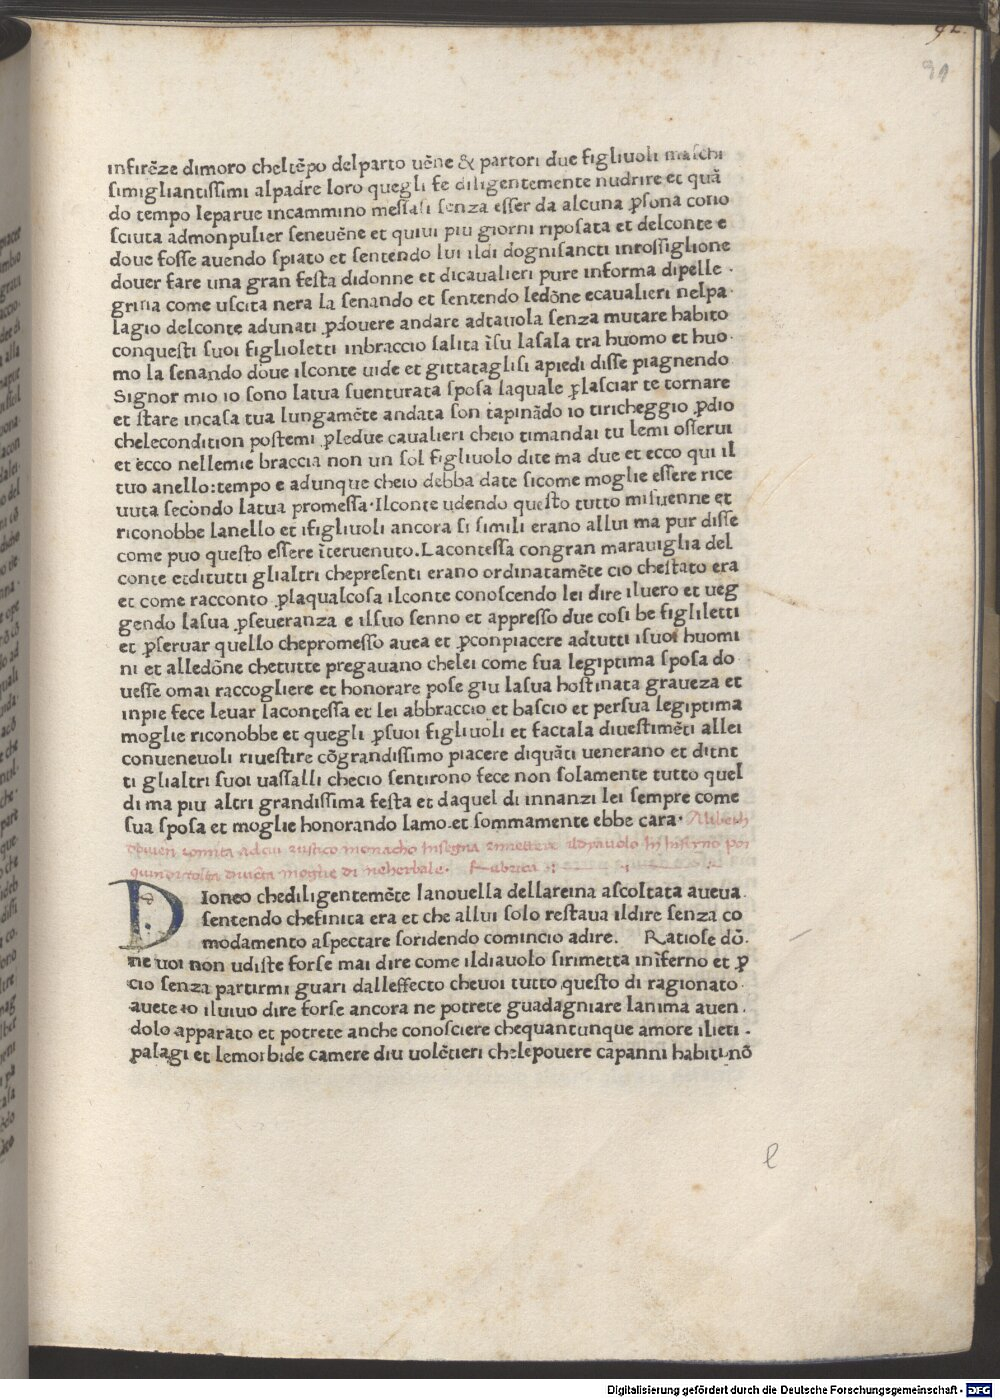 92
91
infirẽze dimoro cheltẽpo delparto uẽne & partori due figliuoli maſchi
ſimigliantiſſimi alpadre loro quegli fe diligentemente nudrire et quã
do tempo leparue incammino meſſaſi ſenza eſſer da alcuna ꝑſona cono
ſciuta admonpulier ſeneuẽne et quiui piu giorni ripoſata et delconte e
doue foſſe auendo ſpiato et ſentendo lui ildi dogniſancti inroſſiglione
douer fare una gran feſta didonne et dicaualieri pure informa dipelle ·
grina come uſcita nera la ſenando et ſentendo ledõne ecaualieri nelpa ·
lagio delconte adunati ꝑdouere andare adtauola ſenza mutare habito
conqueſti ſuoi figlioletti inbraccio ſalita ĩſu laſala tra huomo et huo ·
mo la ſenando doue ilconte uide et gittatagliſi apiedi diſſe piagnendo
Signor mio io ſono latua ſuenturata ſpoſa laquale ꝑlaſciar te tornare
et ſtare incaſa tua lungamẽte andata ſon tapinãdo io tiricheggio ꝑdio
chelecondition poſtemi ꝑledue caualieri cheio timandai tu lemi oſſerui
et ecco nellemie braccia non un ſol figliuolo dite ma due et ecco qui il
tuo anello:tempo e adunque cheio debba date ſicome moglie eſſere rice
uuta ſecondo latua promeſſa · Ilconte udendo queſto tutto miſuenne et
riconobbe lanello et ifigliuoli ancora ſi ſimili erano allui ma pur diſſe
come puo queſto eſſere ĩteruenuto. Laconteſſa congran marauiglia del
conte etditutti glialtri chepreſenti erano ordinatamẽte cio cheſtato era
et come racconto ꝑlaqualcoſa ilconte conoſcendo lei dire iluero et ueg
gendo laſua ꝑſeueranza e ilſuo ſenno et appreſſo due coſi be figliletti
et ꝑſeruar quello chepromeſſo auea et ꝑconpiacere adtutti iſuoi huomi
ni et alledõne chetutte pregauano chelei come ſua legiptima ſpoſa do ·
ueſſe omai raccogliere et honorare poſe giu laſua hoſtinata graueza et
inpie fece leuar laconteſſa et lei abbraccio et baſcio et perſua legiptima
moglie riconobbe et quegli ꝑſuoi figliuoli et factala diueſtimẽti allei
conueneuoli riueſtire cõgrandiſſimo piacere diquãti uenerano et ditut
ti glialtri ſuoi uaſſalli checio ſentirono fece non ſolamente tutto quel
di ma piu altri grandiſſima feſta et daquel di innanzi lei ſempre come
ſua ſpoſa et moglie honorando lamo.et ſommamente ebbe cara · Alibech
diuien romita ad cui ruſtico monacho Inſegna rimettere il diauolo In Inferno poi
quindi tolta diuiẽta moglie di neherbale · Rubrica
Dioneo chediligentemẽte lanouella dellareina aſcoltata aueua ·
ſentendo chefinita era et che allui ſolo reſtaua ildire ſenza co
modamento aſpectare ſoridendo comincio adire. Ratioſe dõ ·
ne uoi non udiſte forſe mai dire come ildiauolo ſirimetta inĩferno et ꝑ
cio ſenza partirmi guari dalleffecto cheuoi tutto queſto di ragionato ·
auete io iluiuo dire forſe ancora ne potrete guadagniare lanima auen ·
dolo apparato et potrete anche conoſciere chequantunque amore ilieti ·
palagi et lemorbide camere diu uolẽtieri chelepouere capanni habiti nõ
e
Digitalisierung gefördert durch die Deutsche Forschungsgemeinschaft - DFG